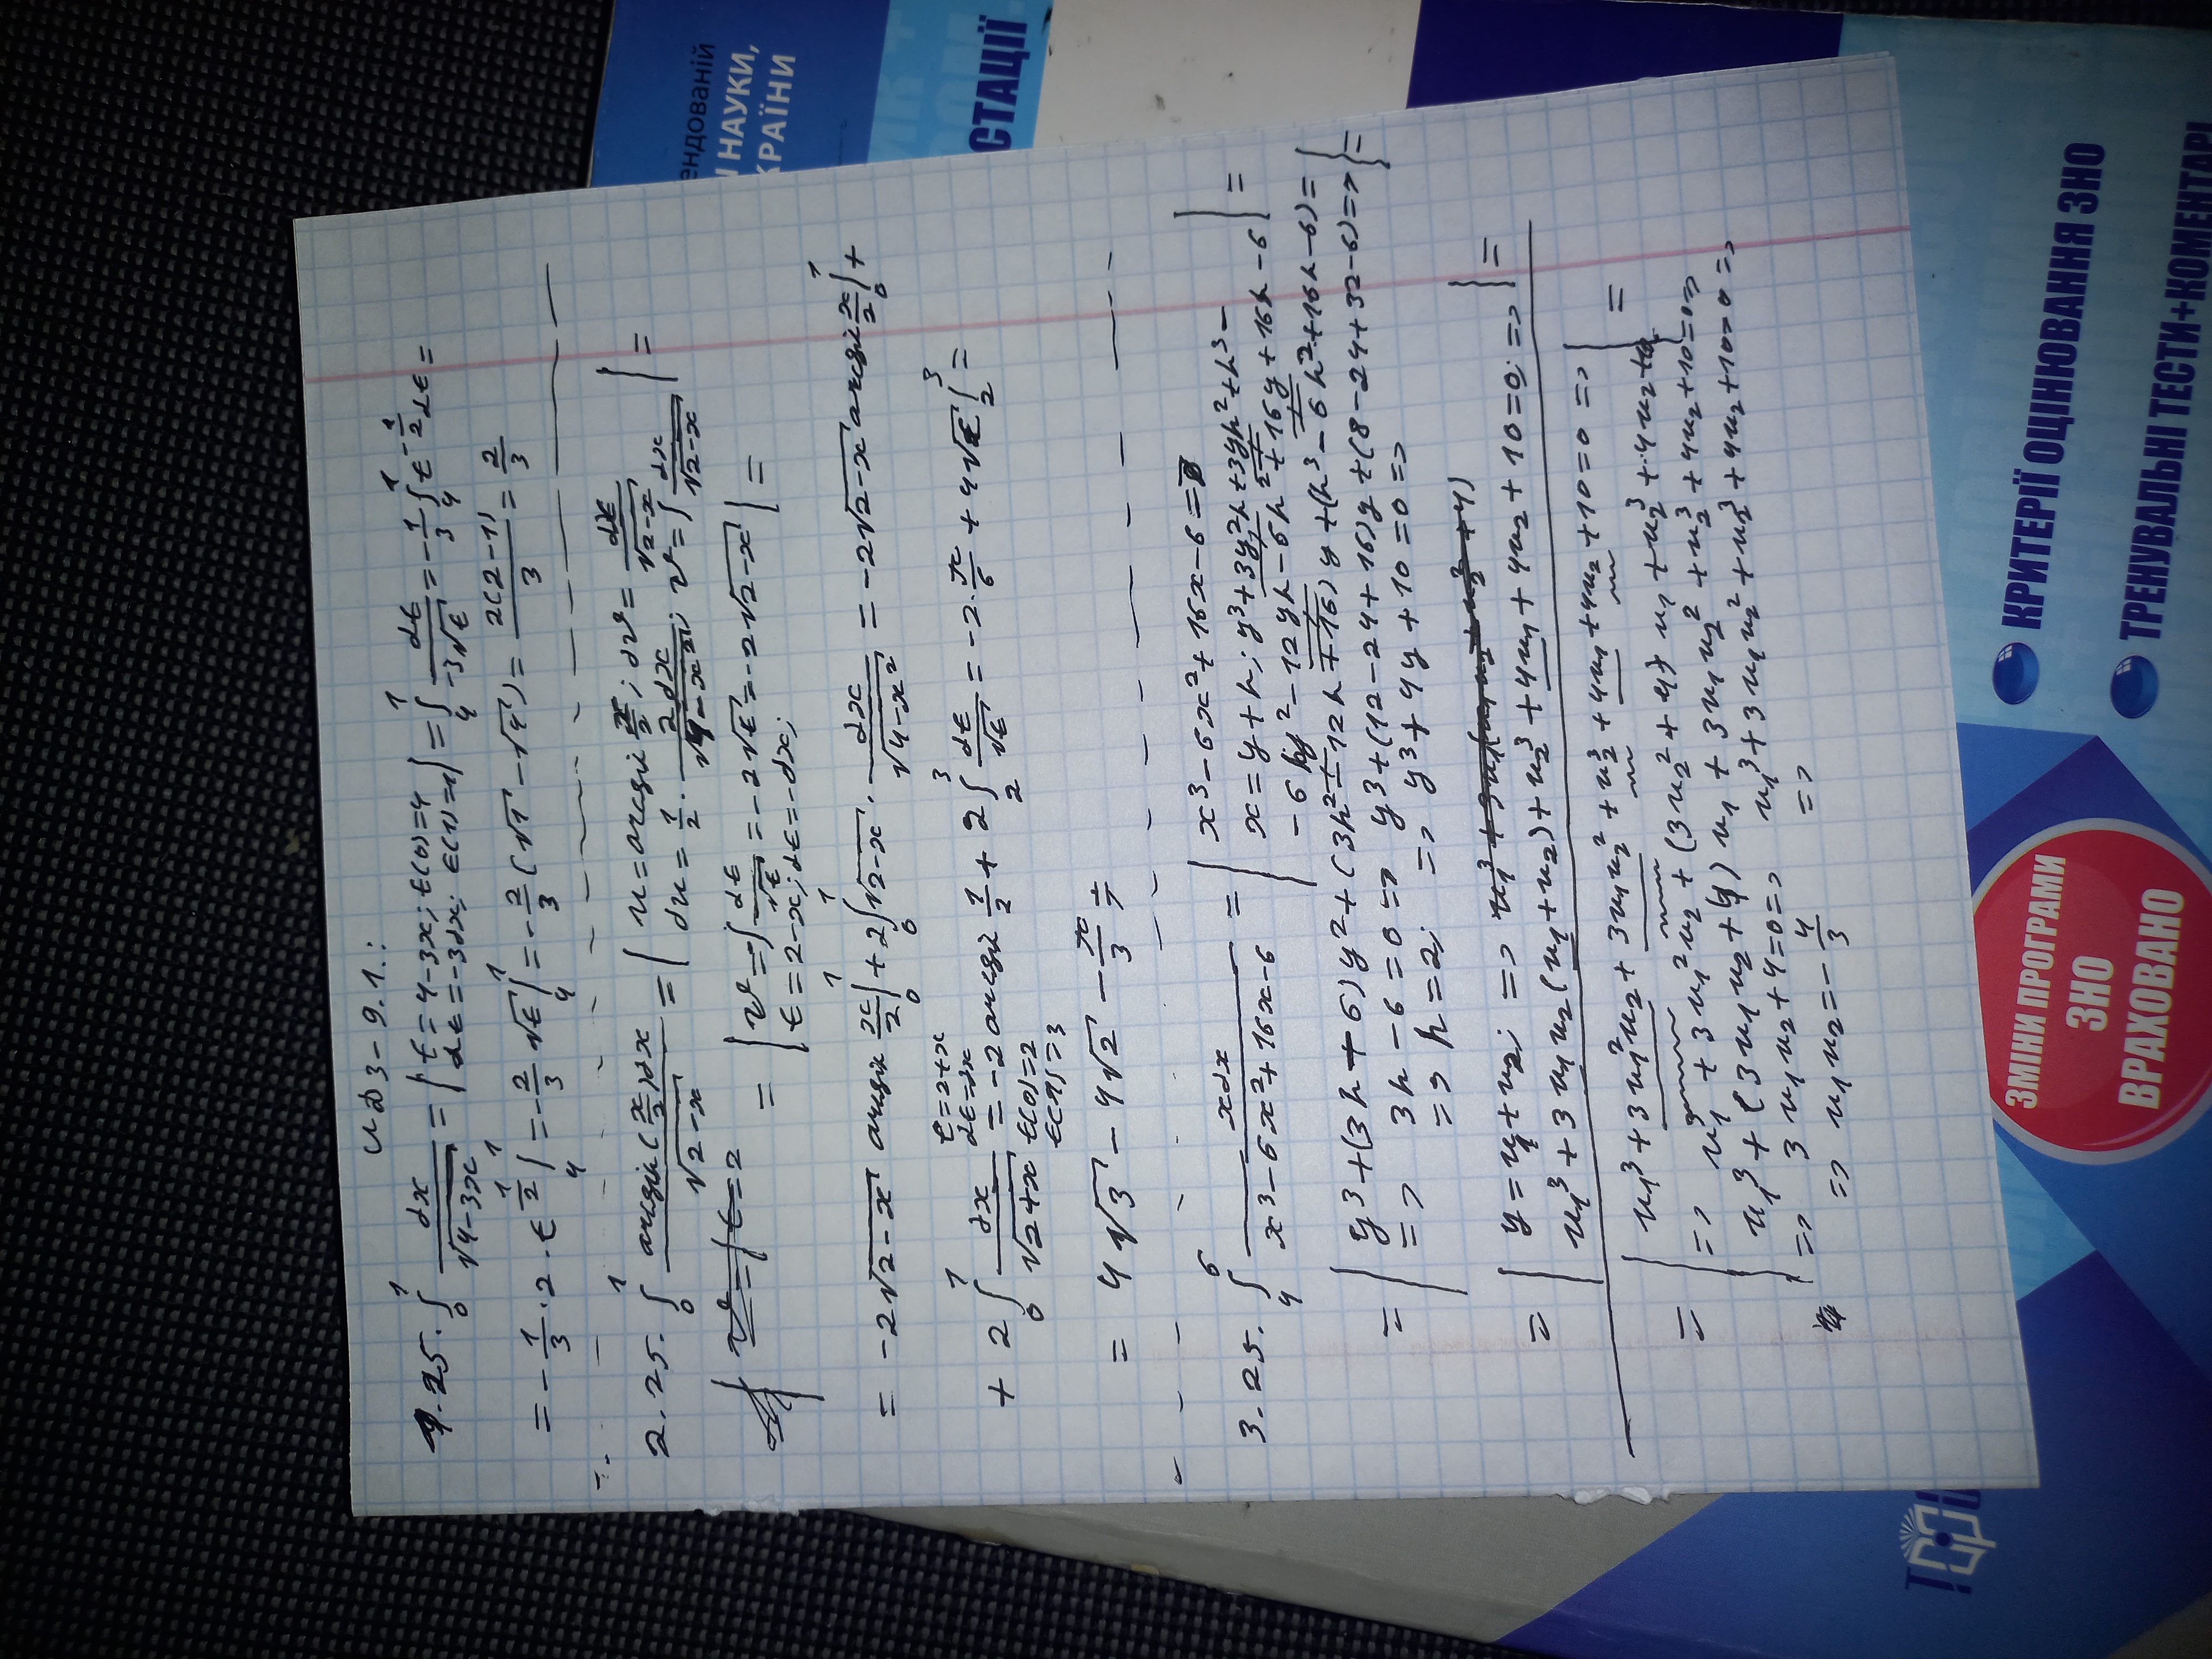 ИДЗ-9.1.:
1.25. ∫₀¹ dx/√(4-3x) = | t=4-3x; t(0)=4 dt=-3dx; t(1)=1 | = ∫₄¹ dt/(-3√t) = -1/3 ∫₄¹ t^(-1/2) dt =
= -1/3 · 2 · t^(1/2) |₄¹ = -2/3 √t |₄¹ = -2/3 (√1 - √4) = 2(2-1)/3 = 2/3
2.25. ∫₀¹ arcsin(x/2)dx/√(2-x) = | u=arcsin x/2; dv = dx/√(2-x)
du = 1/2 · 2dx/√(4-x²); v = ∫ dx/√(2-x) | =
= | v=-∫ dt/√t = -2√t = -2√(2-x) | =
t=2-x; dt=-dx;
= -2√(2-x) arcsin x/2 |₀¹ + 2∫₀¹ √(2-x) · dx/√(4-x²) = -2√(2-x) arcsin x/2 |₀¹ +
+ 2 ∫₀¹ dx/√(2+x) t=2+x dt=dx t(0)=2 t(1)=3 = -2 arcsin 1/2 + 2 ∫₂³ dt/√t = -2·π/6 + 4√t |₂³ =
= 4√3 - 4√2 - π/3
3.25. ∫₄⁶ xdx/(x³-6x²+16x-6) = | x³-6x²+16x-6=0
x=y+h; y³+3y²h+3yh²+h³-
-6y²-12yh-6h²+16y+16h-6 | =
= | y³+(3h-6)y²+(3h²-12h+16)y+(h³-6h²+16h-6)=
=> 3h-6=0 => y³+(12-24+16)y+(8-24+32-6)=>
=> h=2; => y³+4y+10=0 => | =
= | y=u₁+u₂; => u₁³+3u₁
u₁³+3u₁u₂(u₁+u₂)+u₂³+4u₁+4u₂+10=0; => | =
= | u₁³+3u₁²u₂+3u₁u₂²+u₂³+4u₁+4u₂+10=0 => | =
=> u₁³+3u₁²u₂+(3u₂²+4)u₁+u₂³+4u₂+10
u₁³+(3u₁u₂+4)u₁+3u₁u₂²+u₂³+4u₂+10=0=>
=> 3u₁u₂+4=0=> u₁³+3u₁u₂²+u₂³+4u₂+10=0=>
=> u₁u₂=-4/3 =>
ендованій
И НАУКИ,
КРАЇНИ
СТАЦІЇ
КРИТЕРІЇ ОЦІНЮВАННЯ ЗНО
ТРЕНУВАЛЬНІ ТЕСТИ+КОМЕНТАРІ
ЗМІНИ ПРОГРАМИ
ЗНО
ВРАХОВАНО